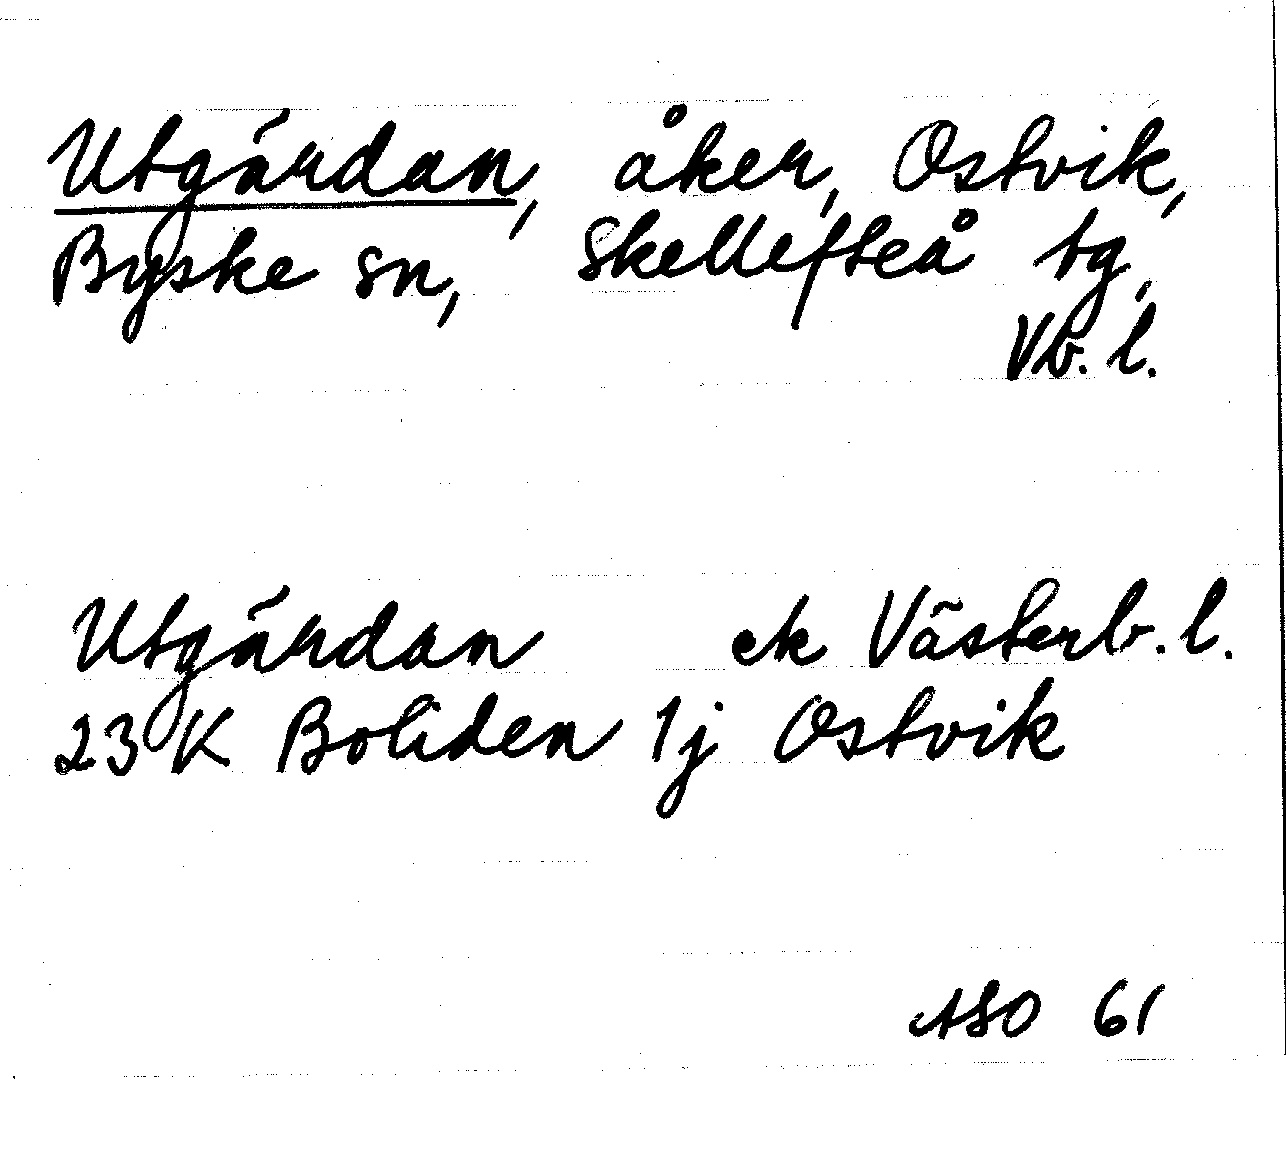 Utgärdan, åker, Ostvik,
Byske sn, Skellefteå tg,
Vb. l.
Utgärdan ek Västerb. l.
23 K Boliden 1j Ostvik
ASO 61